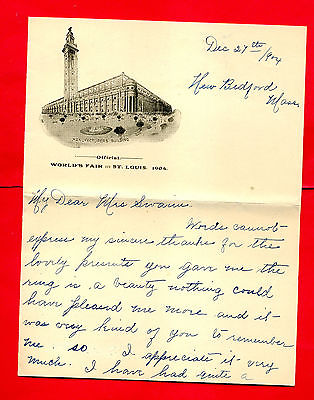 Dec 27th/04
New Bedford
Mass.
MANUFACTURERS BUILDING
Official
WORLD'S FAIR ST. LOUIS. 1904.
My Dear Mrs
Words cannot
express my sincere thanks for the
lovely presents you gave me the
ring is a beauty nothing could
have pleased me more and it
was very kind of you to remember
me. so. I appreciate it very
much. I have had quite a